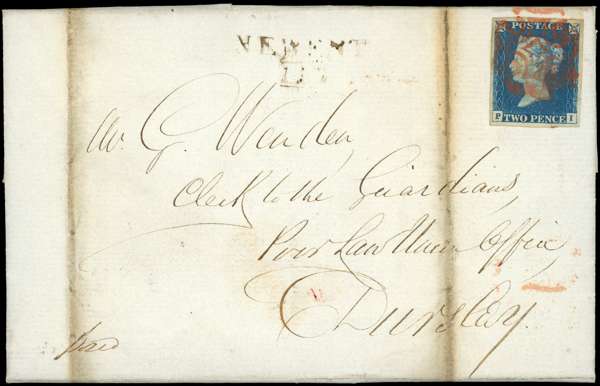 NEWENT
POSTAGE
P TWO PENCE I
Mr. G. Wenden,
Clerk to the Guardians,
Poor Law Union Office
Dursley.